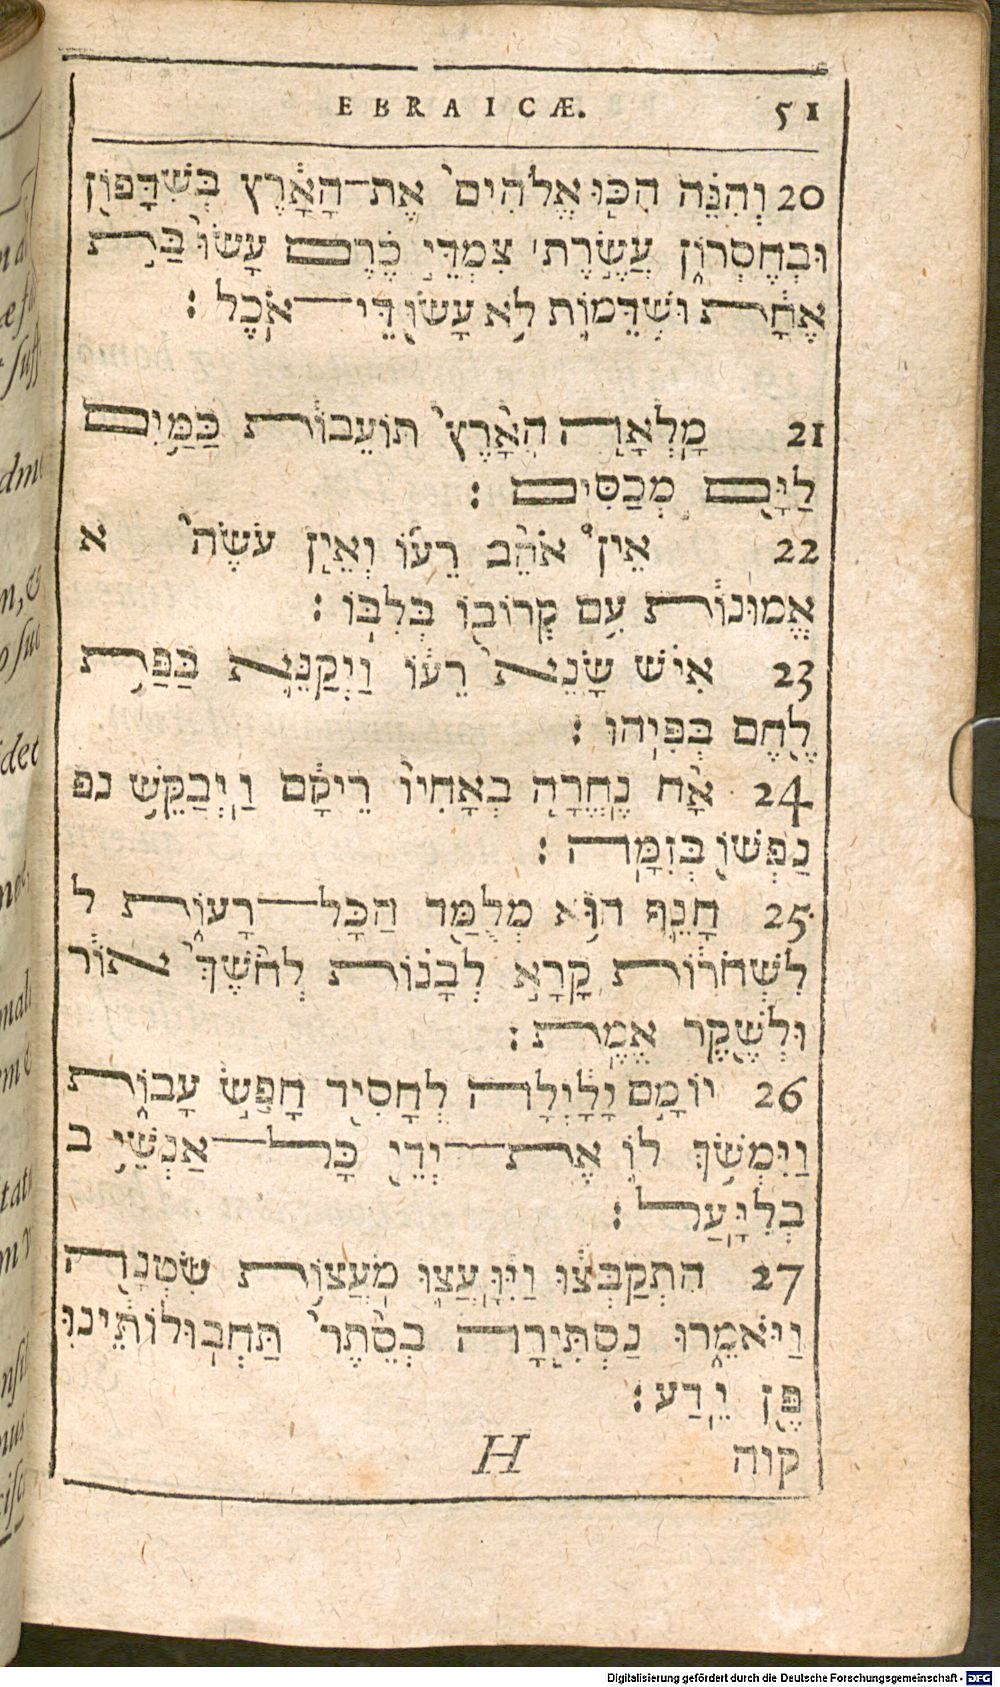 EBRAICÆ. 51
20 וְהִנֵּה הִכּוּ אֱלֹהִים אֶת־הָאָרֶץ בְּשִׁדָּפוֹן
וּבְחֶסְרוֹן עֲשֶׂרֶת צִמְדֵּי כֶרֶם עָשׂוּ בַּת
אֶחָת וּשְׁדֵמוֹת לֹא עָשׂוּ דֵי־אֹכֶל :
21 מָלְאָה הָאָרֶץ תּוֹעֵבוֹת כַּמַּיִם
לַיָּם מְכַסִּים :
22 אֵין אֹהֵב רֵעוֹ וְאֵין עֹשֶׂה א
אֱמוּנוֹת עִם קְרוֹבוֹ בְּלִבּוֹ :
23 אִישׁ שָׂנֵא רֵעוֹ וַיְקַנֵּא בַּפַּת
לֶחֶם בְּפִיהוּ :
24 אָח נֶחֱרָה בְאָחִיו רֵיקָם וַיְבַקֵּשׁ נפ
נַפְשׁוֹ בְּזִמָּה :
25 חָנֵף הוּא מְלֻמַּד הַכָּל־רָעוֹת ל
לִשְׁחֹרוֹת קָרָא לְבָנוֹת לְחֹשֶׁךְ אוֹר
וּלְשֶׁקֶר אֱמֶת :
26 יוֹמָם וָלָיְלָה לְחָסִיד חָפַשׂ עָבוֹת
וַיִּמְשֹׁךְ לוֹ אֶת־יְדֵי כָּל־אַנְשֵׁי ב
בְלִיָּעַל :
27 הִתְקַבְּצוּ וַיִּוָּעֲצוּ מֹעֲצוֹת שִׂטְנָה
וַיּוֹאמְרוּ נַסְתִּירָה בְסֵתֶר תַּחְבוּלוֹתֵינוּ
פֶּן יֵדַע :
H קוה
Digitalisierung gefördert durch die Deutsche Forschungsgemeinschaft - DFG